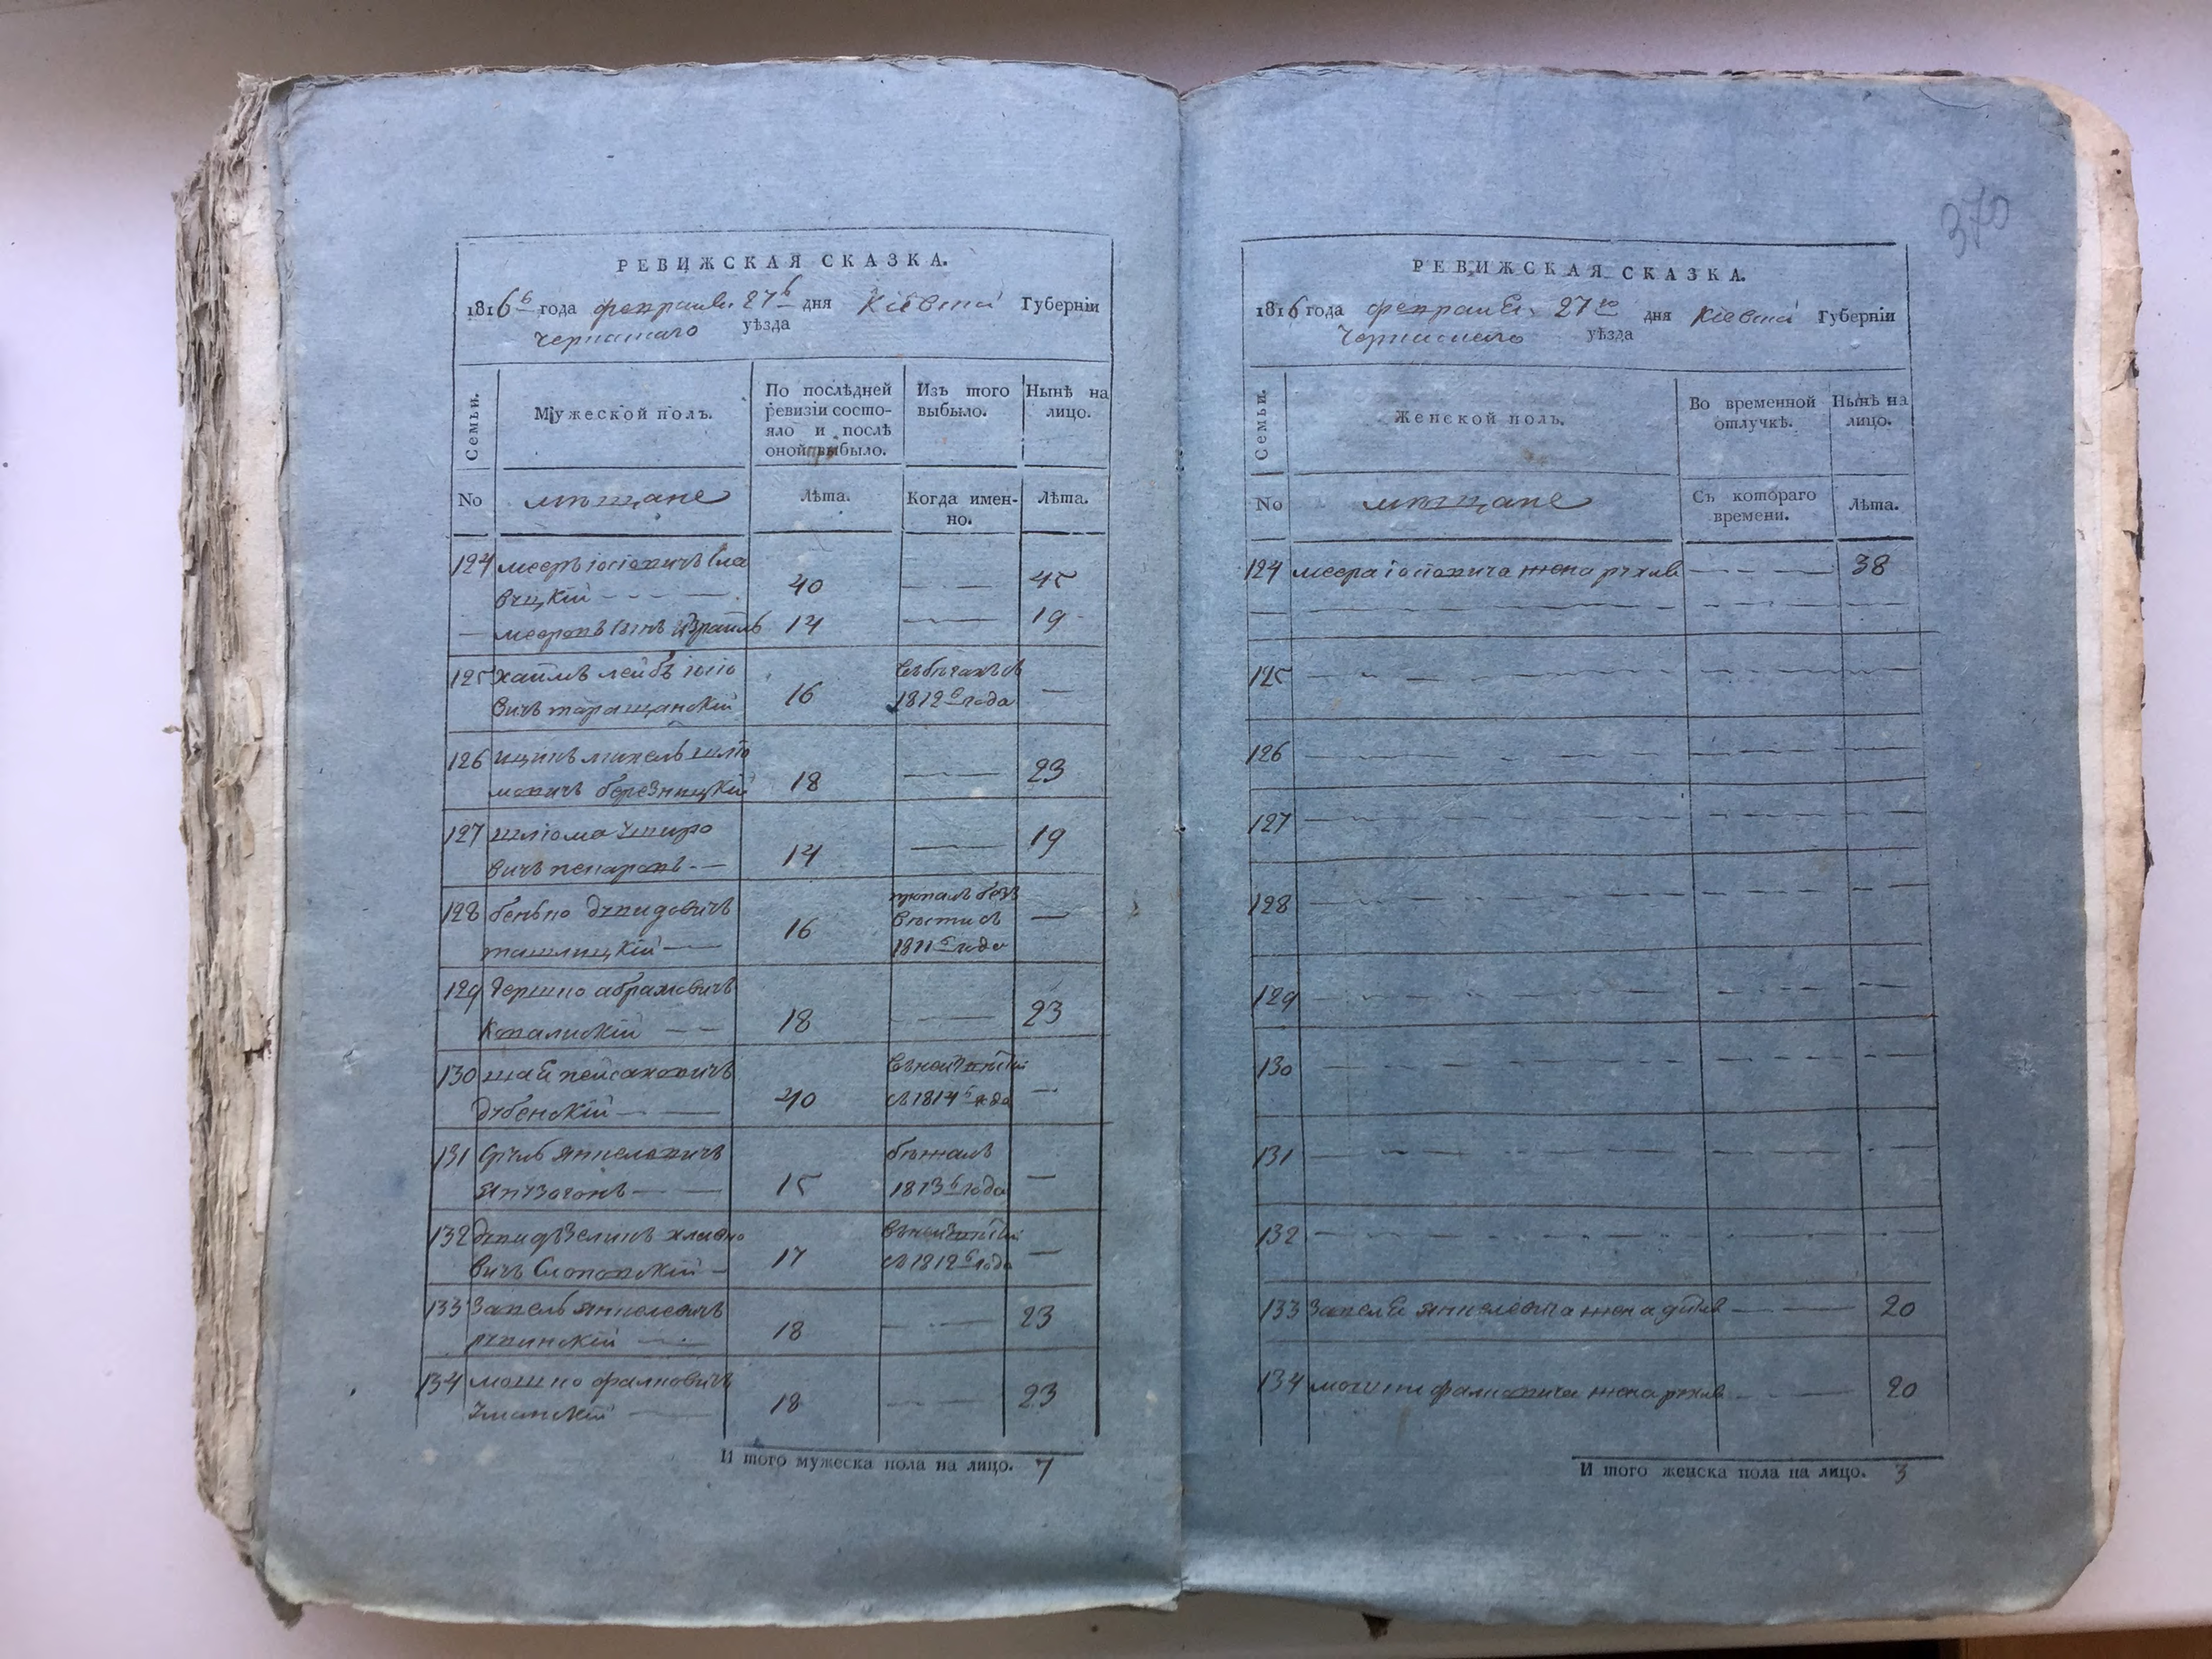 РЕВИЖСКАЯ СКАЗКА.
1816 года февраля 27 дня Кіевской Губерніи
Черкаскаго уѣзда
Семьи.
Мужеской полъ.
По послѣдней
ревизіи состо-
яло и послѣ
оной выбыло.
Изъ того
выбыло.
Нынѣ на
лицо.
No мѣщане Лѣта. Когда имен-
но. Лѣта.
124 мееръ іосіовичъ
40 — 45
— мееровъ сынъ израиль 14 — 19
125 хаимъ лейбъ іосіо
вичъ таращанскій 16 1812 года —
126 ицикъ михель шліо
мовичъ березницкій 18 — 23
127 шліома
вичъ 14 — 19
128 бенько давидовичъ
ташлицкій — 16 пропалъ безъ
вѣсти съ
1811 года —
129 гершко абрамовичъ
18 — 23
130 шая пейсаховичъ
дубенскій — 40
съ 1814 года —
131 сруль янкелевичъ
15 бѣжалъ
1813 года —
132 давидъ зеликъ
вичъ 17
съ 1812 года —
133 янкелевичъ
18 — 23
134 мошко фалковичъ
уманскій — 18 — 23
И того мужеска пола на лицо. 7
370
РЕВИЖСКАЯ СКАЗКА.
1816 года февраля 27 дня Кіевской Губерніи
Черкаскаго уѣзда
Семьи.
Женской полъ.
Во временной
отлучкѣ.
Нынѣ на
лицо.
No мѣщане Съ котораго
времени. Лѣта.
124 меера іосіовича жена рухля — 38
125
126
127
128
129
130
131
132
133 янкелевича жена — 20
134 мошки фалковича жена рухля — 20
И того женска пола на лицо. 3